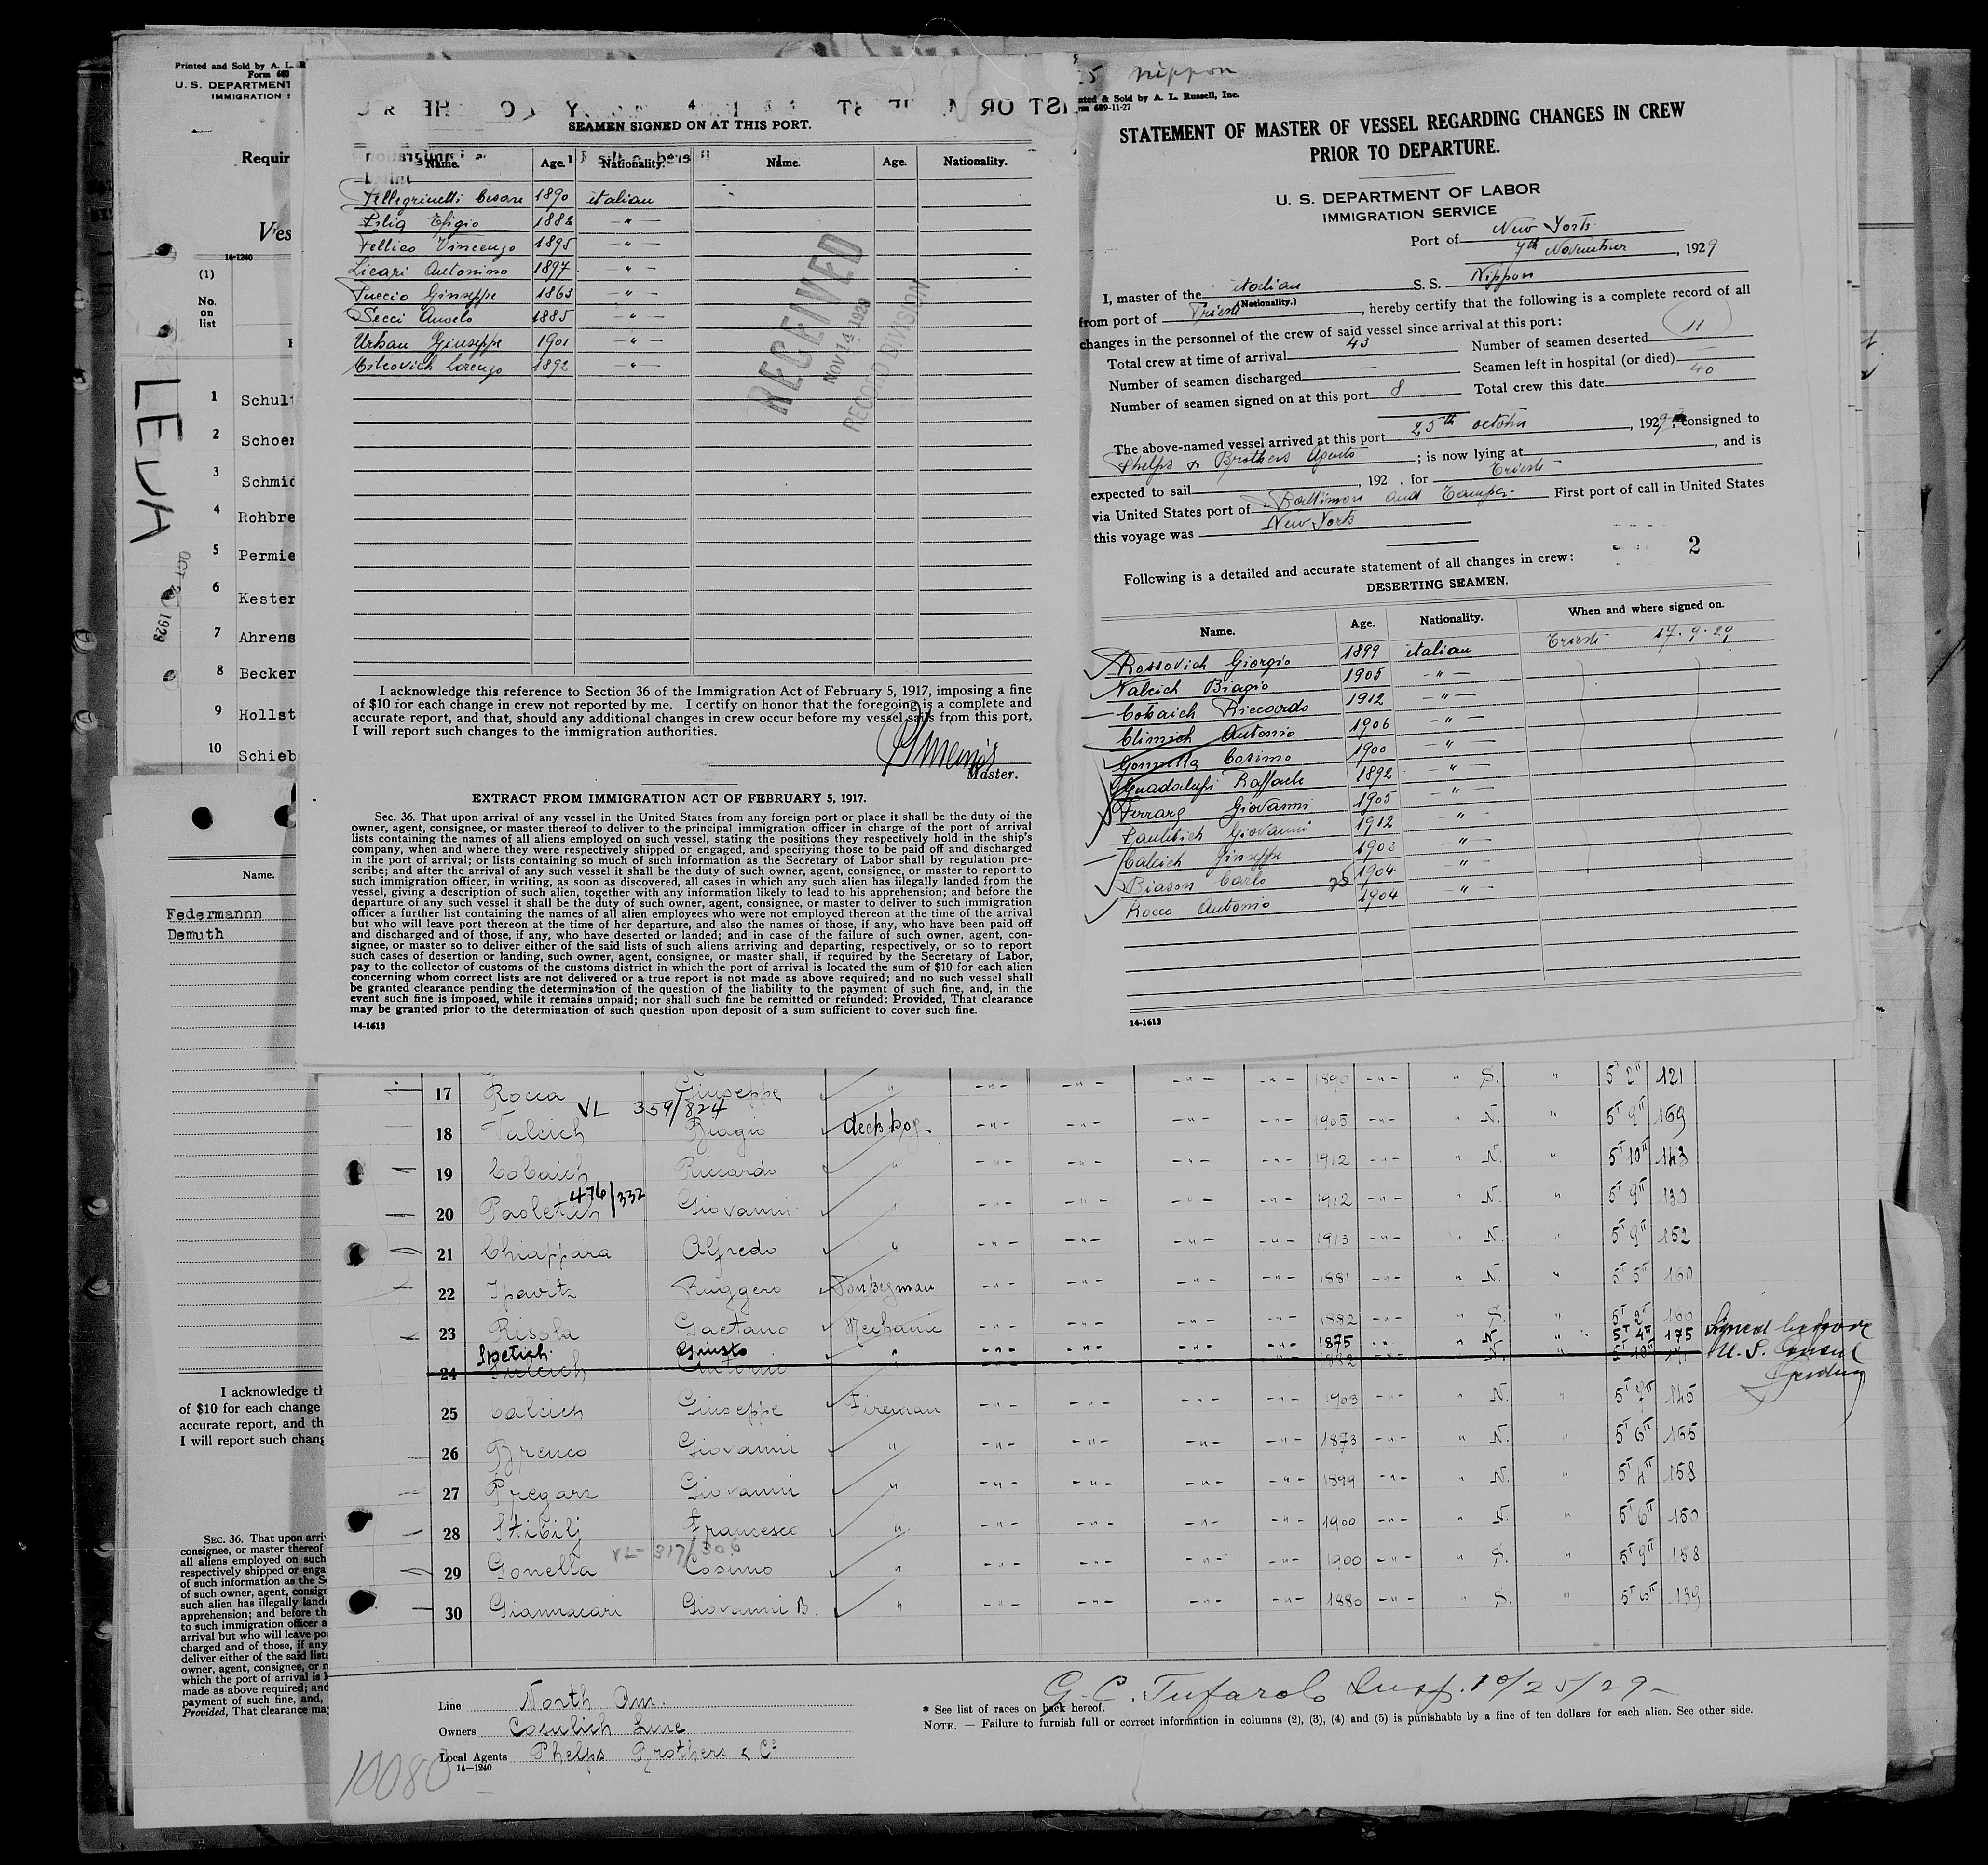 Printed and Sold by A. L.
Form 680
U. S. DEPARTMENT
IMMIGRATION
Requir
Ves
14-1240
(1)
No.
on
list
1 Schul
2 Schoer
3 Schmid
4 Rohbre
5 Permie
6 Kester
7 Ahrens
8 Becker
9 Hollst
10 Schieb
Name.
Federmannn
Demuth
I acknowledge th
of $10 for each change
accurate report, and th
I will report such chang
SEC. 36. That upon arri
consignee, or master thereof
all aliens employed on such
respectively shipped or enga
of such information as the Se
of such owner, agent, consign
such alien has illegally lande
apprehension; and before th
to such immigration officer a
arrival but who will leave po
charged and of those, if any
deliver either of the said lists
owner, agent, consignee, or m
which the port of arrival is l
made as above required; and
payment of such fine, and,
Provided, That clearance ma
SEAMEN SIGNED ON AT THIS PORT.
Name. Age. Nationality. Name. Age. Nationality.
Pellegrinetti Cesare 1890 italian
Efigio 1882 - " -
Pellico Vincenzo 1895 - " -
Licari Antonino 1897 - " -
Puccio Giuseppe 1863 - " -
Secci Angelo 1885 - " -
Urban Giuseppe 1901 - " -
Cilcovich Lorenzo 1892 - " -
RECEIVED
NOV 14 1929
RECORD DIVISION
I acknowledge this reference to Section 36 of the Immigration Act of February 5, 1917, imposing a fine
of $10 for each change in crew not reported by me. I certify on honor that the foregoing is a complete and
accurate report, and that, should any additional changes in crew occur before my vessel sails from this port,
I will report such changes to the immigration authorities.
Master.
EXTRACT FROM IMMIGRATION ACT OF FEBRUARY 5, 1917.
SEC. 36. That upon arrival of any vessel in the United States from any foreign port or place it shall be the duty of the
owner, agent, consignee, or master thereof to deliver to the principal immigration officer in charge of the port of arrival
lists containing the names of all aliens employed on such vessel, stating the positions they respectively hold in the ship's
company, when and where they were respectively shipped or engaged, and specifying those to be paid off and discharged
in the port of arrival; or lists containing so much of such information as the Secretary of Labor shall by regulation pre-
scribe; and after the arrival of any such vessel it shall be the duty of such owner, agent, consignee, or master to report to
such immigration officer, in writing, as soon as discovered, all cases in which any such alien has illegally landed from the
vessel, giving a description of such alien, together with any information likely to lead to his apprehension; and before the
departure of any such vessel it shall be the duty of such owner, agent, consignee, or master to deliver to such immigration
officer a further list containing the names of all alien employees who were not employed thereon at the time of the arrival
but who will leave port thereon at the time of her departure, and also the names of those, if any, who have been paid off
and discharged and of those, if any, who have deserted or landed; and in case of the failure of such owner, agent, con-
signee, or master so to deliver either of the said lists of such aliens arriving and departing, respectively, or so to report
such cases of desertion or landing, such owner, agent, consignee, or master shall, if required by the Secretary of Labor,
pay to the collector of customs of the customs district in which the port of arrival is located the sum of $10 for each alien
concerning whom correct lists are not delivered or a true report is not made as above required; and no such vessel shall
be granted clearance pending the determination of the question of the liability to the payment of such fine, and, in the
event such fine is imposed, while it remains unpaid; nor shall such fine be remitted or refunded: Provided, That clearance
may be granted prior to the determination of such question upon deposit of a sum sufficient to cover such fine.
14-1613
Nippon
nted & Sold by A. L. Russell, Inc.
rm 689-11-27
STATEMENT OF MASTER OF VESSEL REGARDING CHANGES IN CREW
PRIOR TO DEPARTURE.
U. S. DEPARTMENT OF LABOR
IMMIGRATION SERVICE
Port of New York
7th November, 1929
I, master of the italian S. S. Nippon
(Nationality.)
from port of Trieste, hereby certify that the following is a complete record of all
changes in the personnel of the crew of said vessel since arrival at this port:
Total crew at time of arrival 43 Number of seamen deserted 11
Number of seamen discharged — Seamen left in hospital (or died) —
Number of seamen signed on at this port 8 Total crew this date 40
The above-named vessel arrived at this port 25th october, 1929, consigned to
Phelps & Brothers Agents; is now lying at , and is
expected to sail , 192 . for Trieste
via United States port of Baltimore and Tampa First port of call in United States
this voyage was New York
2
Following is a detailed and accurate statement of all changes in crew:
DESERTING SEAMEN.
Name. Age. Nationality. When and where signed on.
Rossovich Giorgio 1899 italian Trieste 17.9.29
Valcich Biagio 1905 - " -
Cobaich Riccardo 1912 - " -
Climich Antonio 1906 - " -
Gonnella Cosimo 1900 - " -
Guadalupi Raffaele 1892 - " -
Ferrara Giovanni 1905 - " -
Pauletich Giovanni 1912 - " -
Calcich Giuseppe 1903 - " -
Biason Carlo 1904 - " -
Rocco Antonio 1904 - " -
14-1613
17 Rocca Giuseppe " 1890 " S. " 5' 2" 121
VL 359/824
18 Valcich Biagio deck boy 1905 " N. " 5' 9" 169
19 Cobaich Riccardo " 1912 " N. " 5' 10" 143
476/332
20 Paoletich Giovanni " 1912 " N. " 5' 9" 130
21 Chiappara Alfredo " 1913 " N. " 5' 9" 152
22 Ipavitz Ruggero Donkeyman 1881 " N. " 5' 5" 160
23 Risola Gaetano Mechanic 1882 " S. " 5' 2" 100
Spetich Giusto " 1875 " N. " 5' 4" 175 Signed before
24 Antonio 1882 U. S. Consul
25 Calcich Giuseppe Fireman 1903 " N. 5' 7" 145
26 Brenco Giovanni " 1873 " N. " 5' 6" 165
27 Pregarz Giovanni " 1899 " N. 5' 4" 158
28 Stibilj Francesco " 1900 " N. 5' 6" 150
VL-317/306
29 Gonella Cosimo " 1900 " S. " 5' 9" 158
30 Giannacari Giovanni B. " 1880 " S. " 5' 6" 139
Line North Am.
Owners Cosulich Line
Local Agents Phelps Brothers & Co
14—1240
10080
G. C. Tufarolo Insp. 10/25/29
* See list of races on back hereof.
NOTE. — Failure to furnish full or correct information in columns (2), (3), (4) and (5) is punishable by a fine of ten dollars for each alien. See other side.